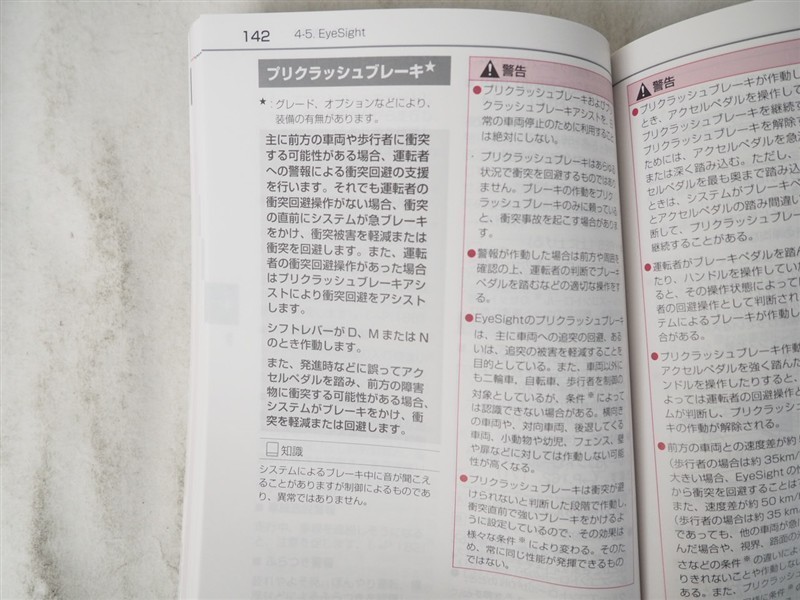 142 4-5. EyeSight
プリクラッシュブレーキ★
★：グレード、オプションなどにより、
装備の有無があります。
主に前方の車両や歩行者に衝突
する可能性がある場合、運転者
への警報による衝突回避の支援
を行います。それでも運転者の
衝突回避操作がない場合、衝突
の直前にシステムが急ブレーキ
をかけ、衝突被害を軽減または
衝突を回避します。また、運転
者の衝突回避操作があった場合
はプリクラッシュブレーキアシ
ストにより衝突回避をアシスト
します。
シフトレバーが D、M または N
のとき作動します。
また、発進時などに誤ってアク
セルペダルを踏み、前方の障害
物に衝突する可能性がある場合、
システムがブレーキをかけ、衝
突を軽減または回避します。
知識
システムによるブレーキ中に音が聞こえ
ることがありますが制御によるものであ
り、異常ではありません。
警告
●プリクラッシュブレーキおよびプ
クラッシュブレーキアシストを、
常の車両停止のために利用すること
は絶対にしない。
・プリクラッシュブレーキはあらゆる
状況で衝突を回避するものではあり
ません。ブレーキの作動をプリク
ラッシュブレーキのみに頼っている
と、衝突事故を起こす場合がありま
す。
●警報が作動した場合は前方や周囲を
確認の上、運転者の判断でブレーキ
ペダルを踏むなどの適切な操作をす
る。
●EyeSightのプリクラッシュブレーキ
は、主に車両への追突の回避、ある
いは、追突の被害を軽減することを
目的としている。また、車両以外に
も二輪車、自転車、歩行者を制御の
対象としているが、条件※によって
は認識できない場合がある。横向き
の車両や、対向車両、後退してくる
車両、小動物や幼児、フェンス、壁
や扉などに対しては作動しない可能
性が高くなる。
●プリクラッシュブレーキは衝突が避
けられないと判断した段階で作動し、
衝突直前で強いブレーキをかけるよ
うに設定しているので、その効果は
様々な条件※により変わる。そのた
め、常に同じ性能が発揮できるもの
ではない。
警告
●プリクラッシュブレーキが作動し
とき、アクセルペダルを操作して
プリクラッシュブレーキを継続す
プリクラッシュブレーキを解除す
ためには、アクセルペダルを急
または深く踏み込む。ただし、
セルペダルを最も奥まで踏み込
ときは、システムがブレーキペ
とアクセルペダルの踏み間違い
断して、プリクラッシュブレー
継続することがある。
●運転者がブレーキペダルを踏ん
たり、ハンドルを操作してい
ると、その操作状態によって
者の回避操作として判断され
テムによるブレーキが作動し
合がある。
●プリクラッシュブレーキ作動
アクセルペダルを強く踏んだ
ンドルを操作したりすると、
よっては運転者の回避操作と
ムが判断し、プリクラッシ
キの作動が解除される。
●前方の車両との速度差が約
（歩行者の場合は約 35km/
大きい場合、EyeSight の
から衝突を回避することは
また、速度差が約 50 km/
（歩行者の場合は約 35 km
であっても、他の車両が急
んだ場合や、視界、路面の
さなどの条件※の違いによ
りきれないことや作動しない
ある。また、プリクラッシ